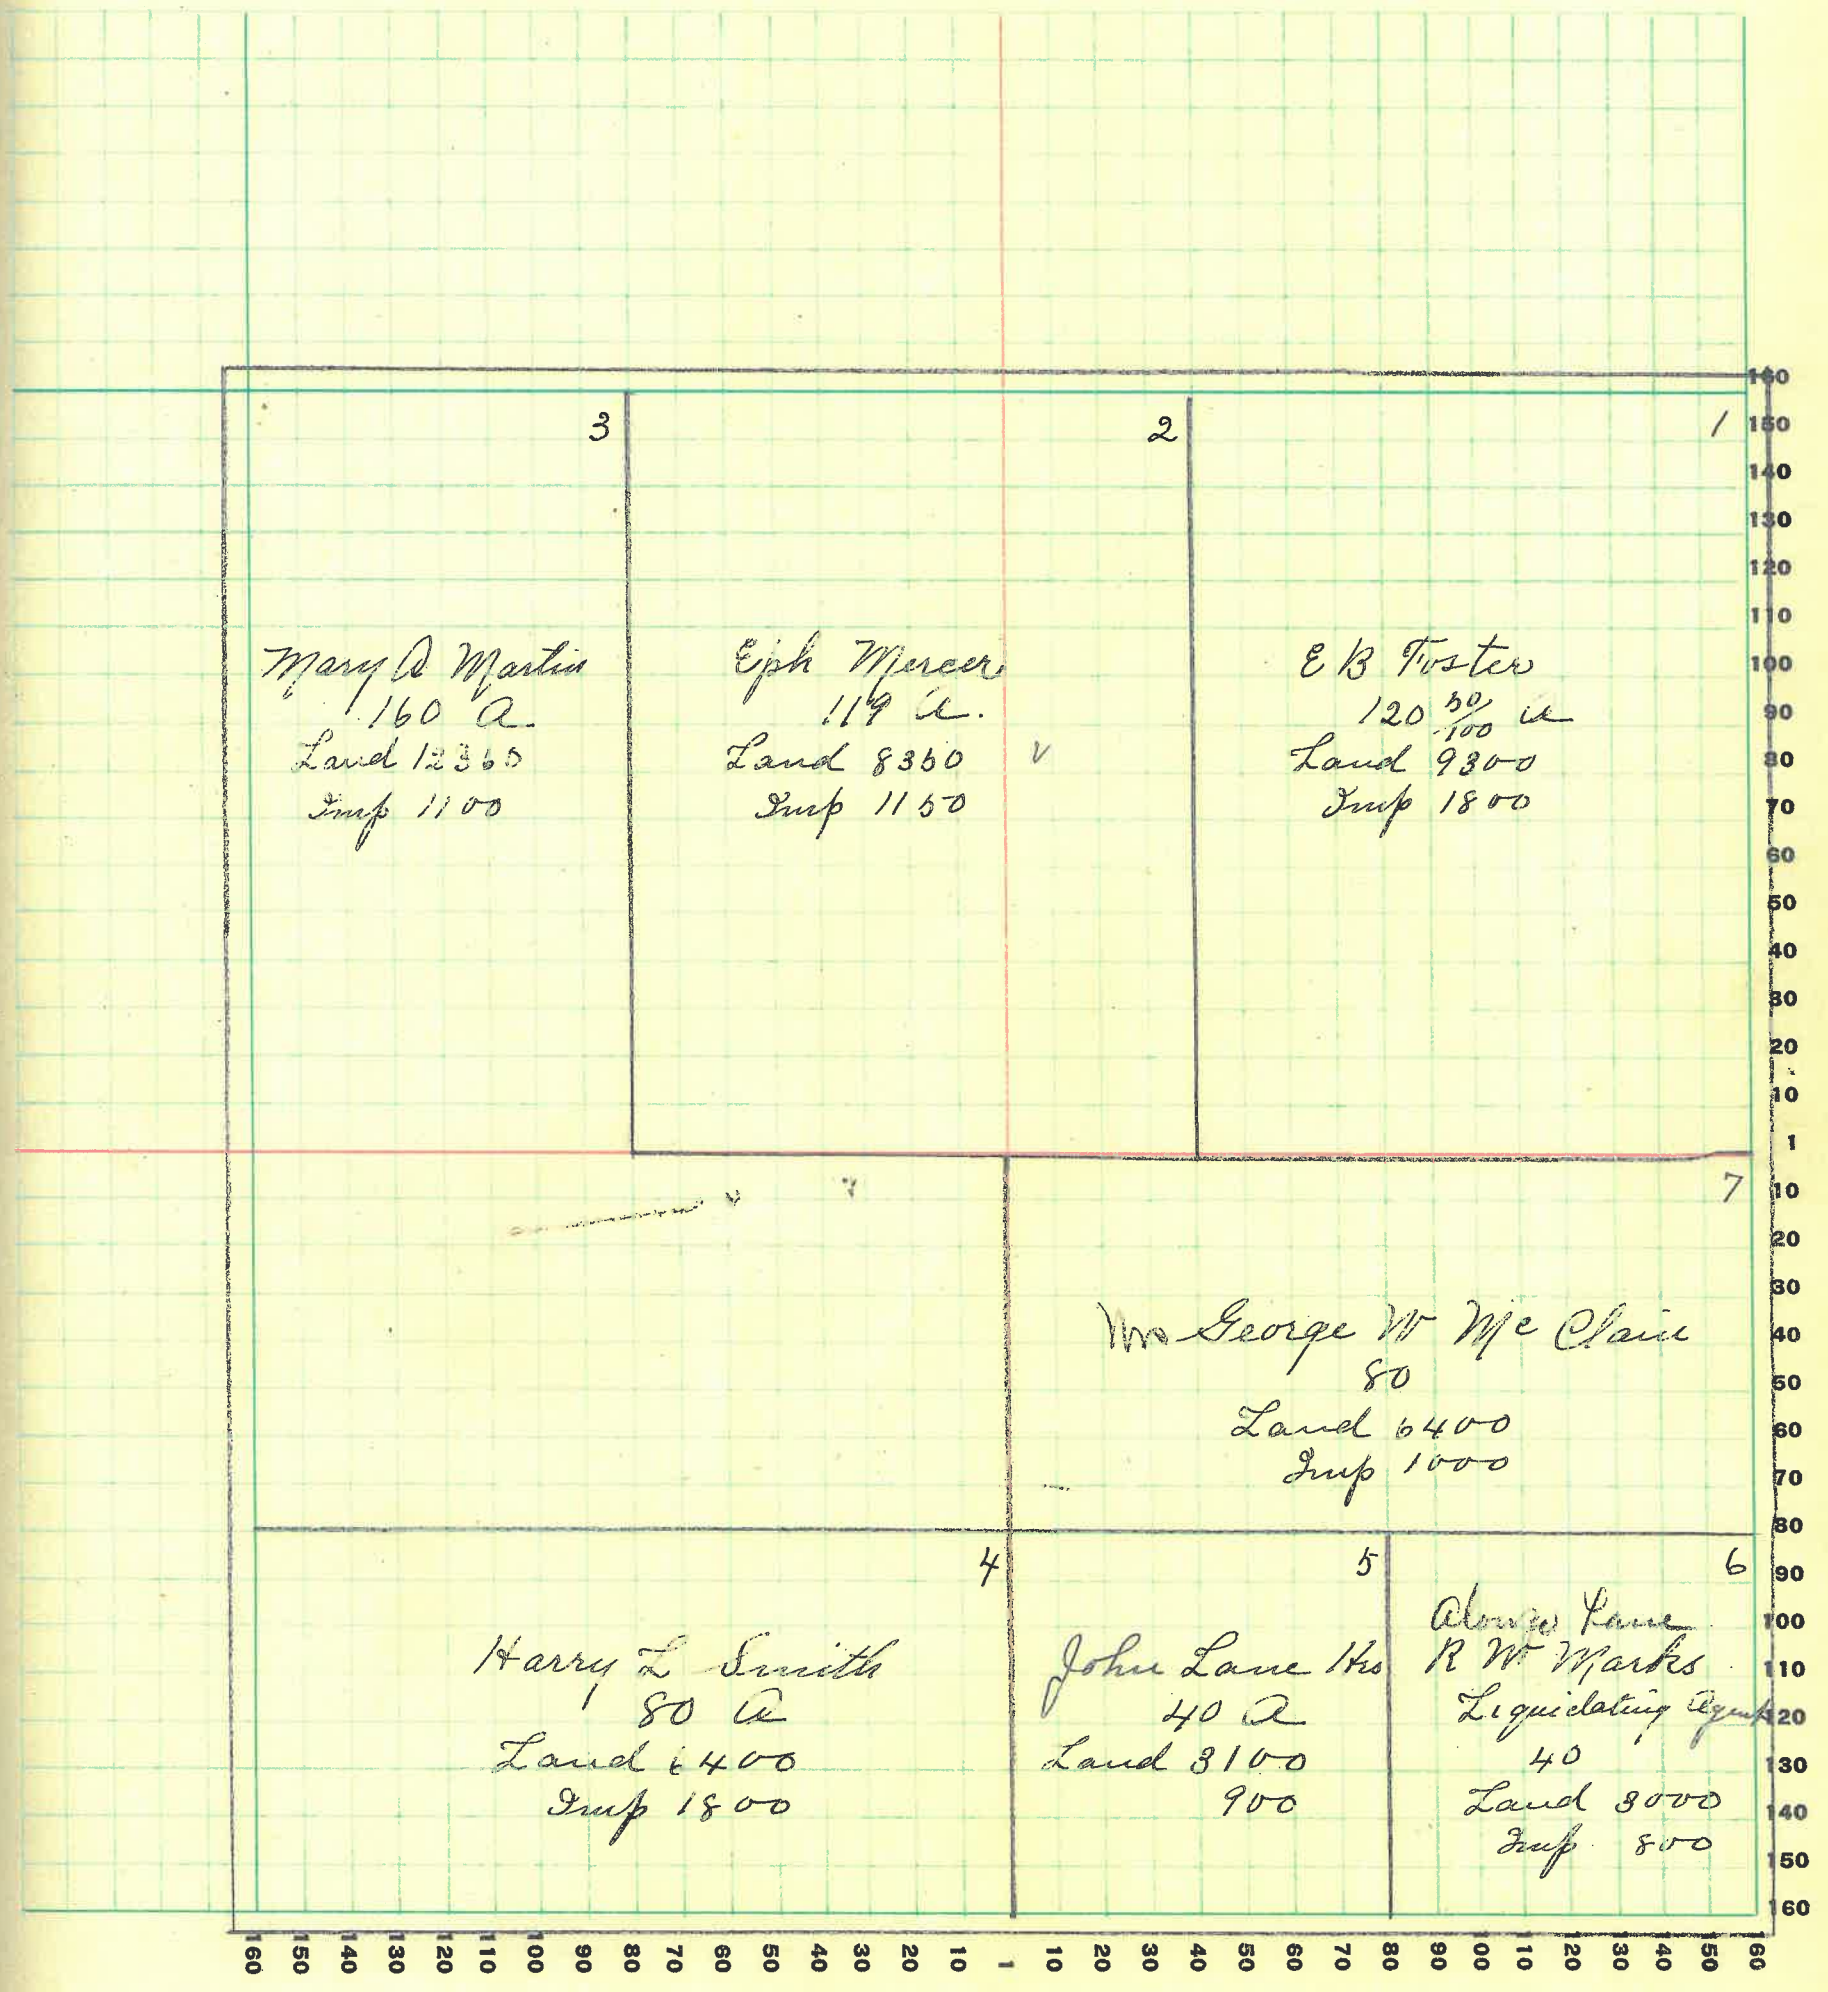 3
Mary A Martin
160 A.
Land 12360
Imp 1100
2
Eph Mercer
119 A.
Land 8350
Imp 1150
1
E B Foster
120 50/100 A
Land 9300
Imp 1800
7
Mrs George W Mc Clain
80
Land 6400
Imp 1000
4
Harry L Smith
80 A
Land 6400
Imp 1800
5
John Lane Hrs
40 A
Land 3100
900
6
Alonzo Lane
R W Marks
Liquidating Agent
40
Land 3000
Imp 800
160
150
140
130
120
110
100
90
80
70
60
50
40
30
20
10
1
10
20
30
40
50
60
70
80
90
100
110
120
130
140
150
160
160 150 140 130 120 110 100 90 80 70 60 50 40 30 20 10 1 10 20 30 40 50 60 70 80 90 100 110 120 130 140 150 160